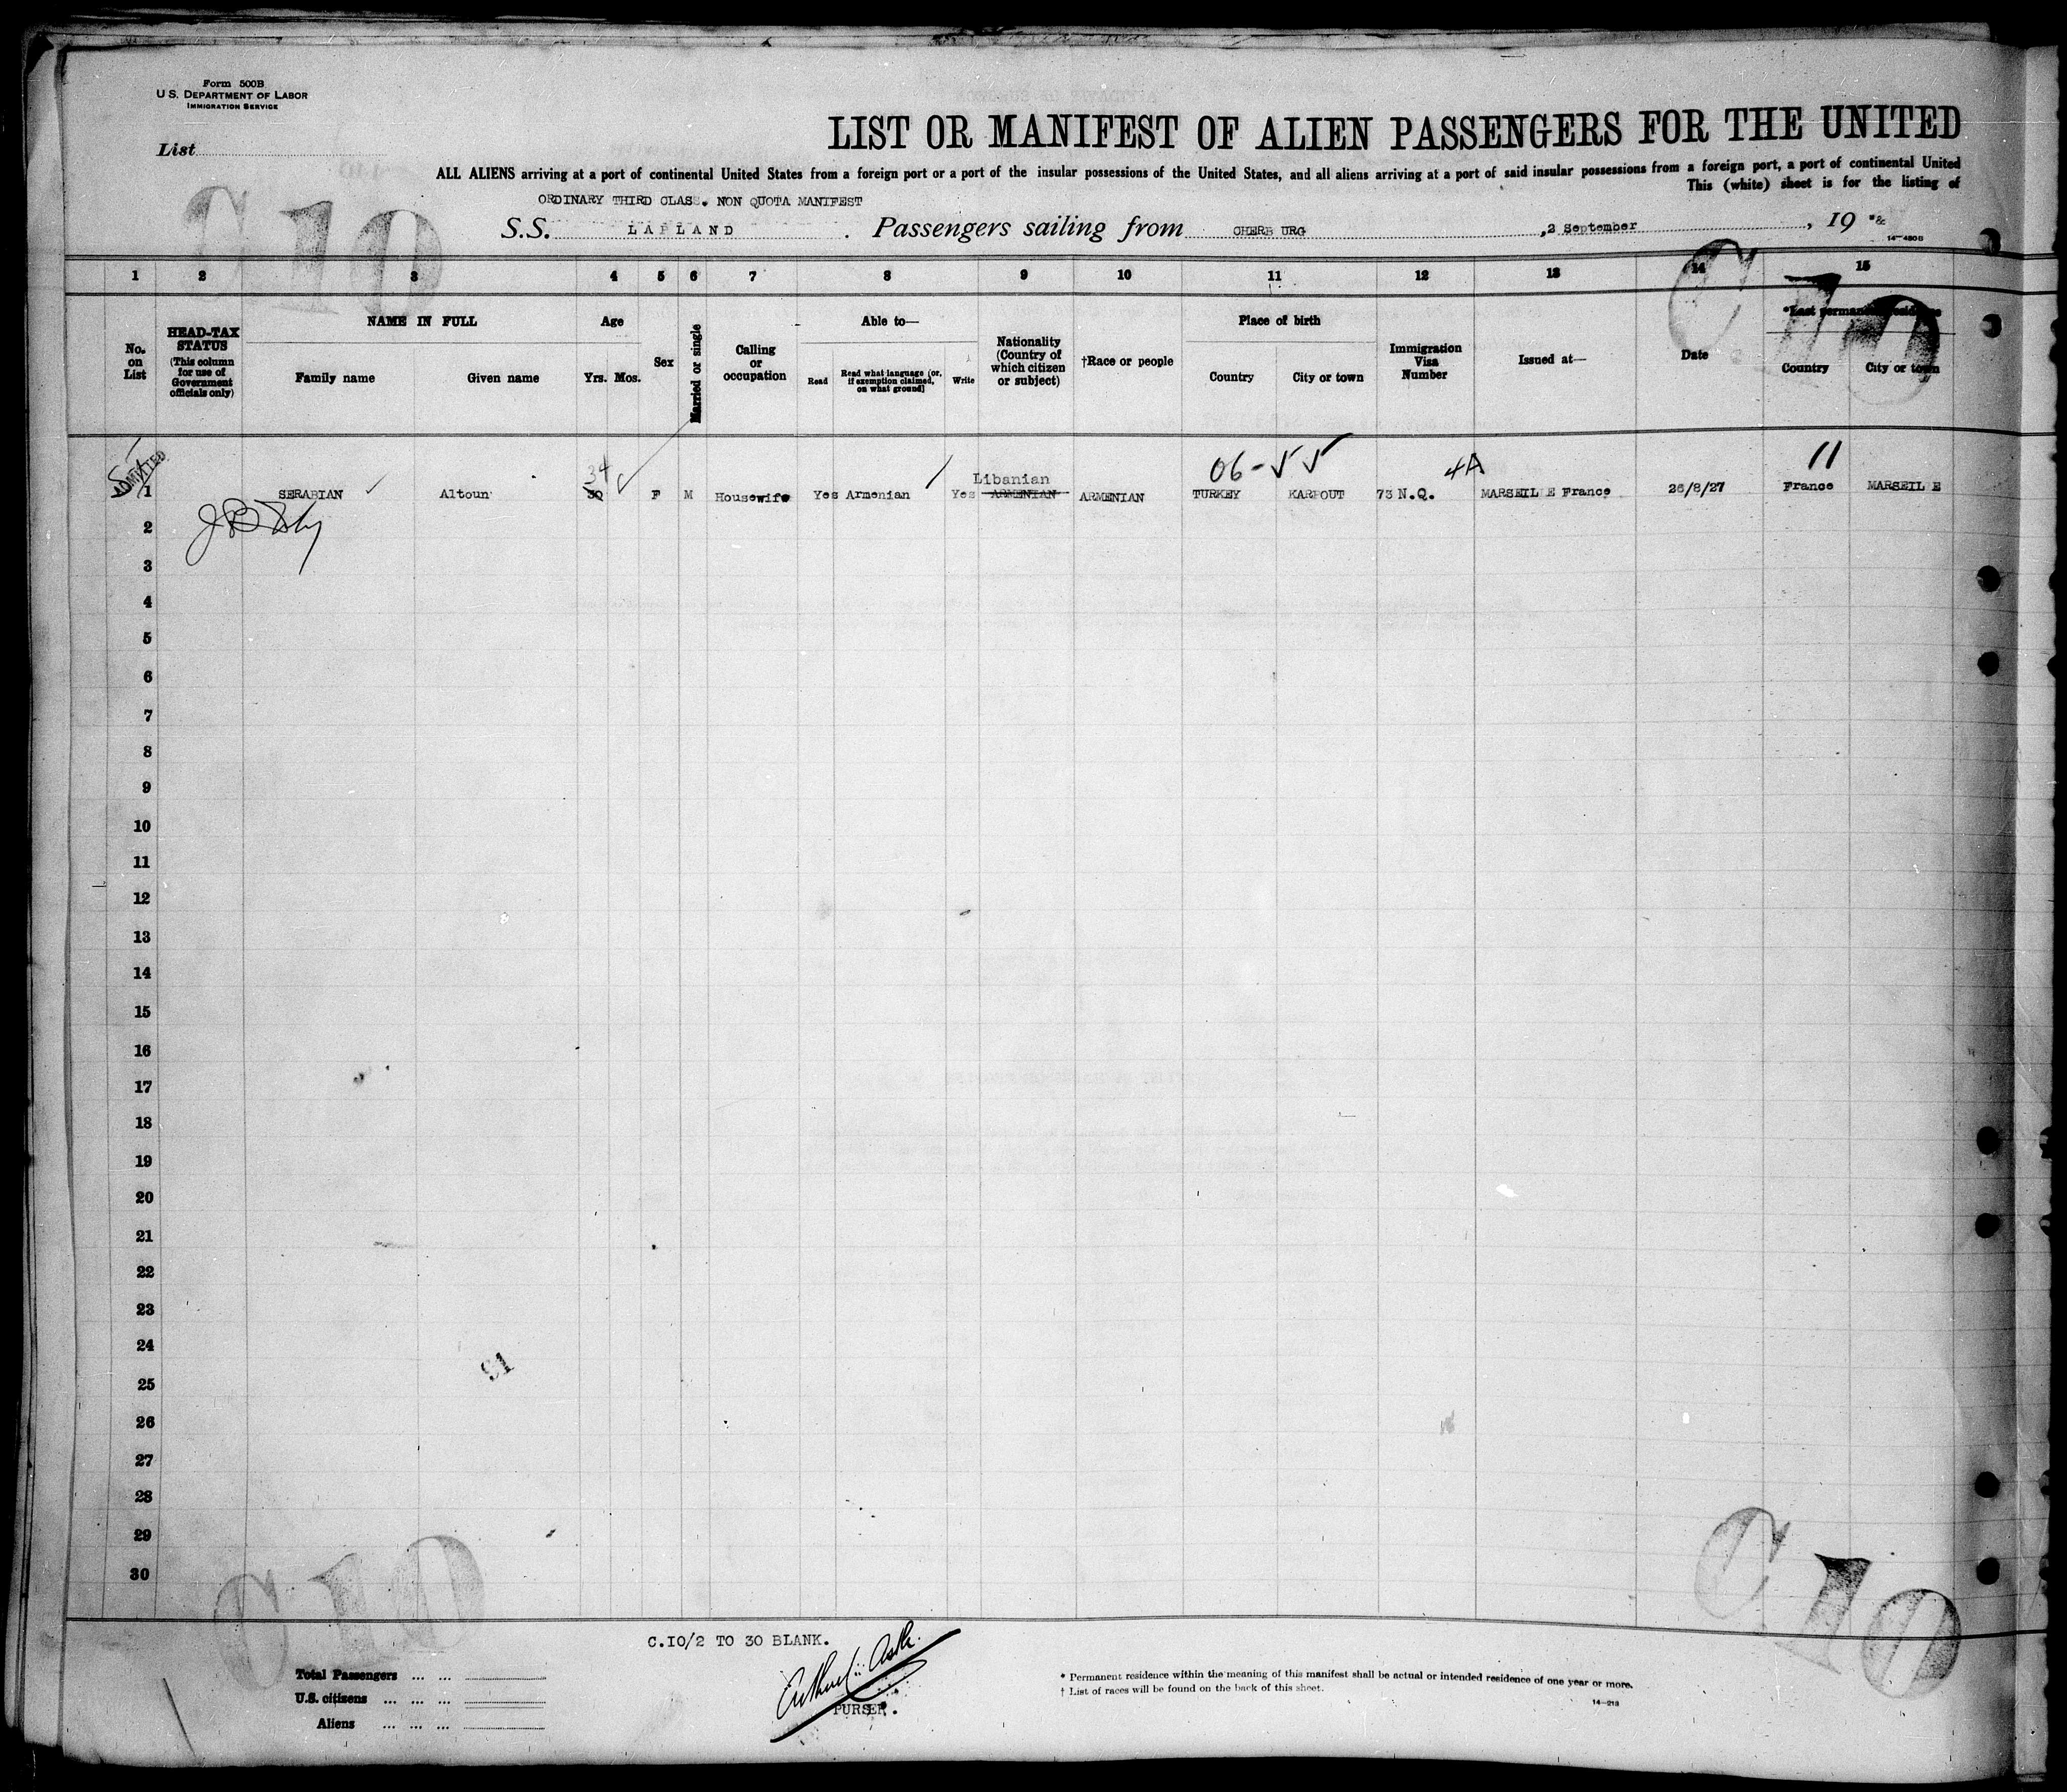 Form 500B
U S. DEPARTMENT OF LABOR
IMMIGRATION SERVICE
List
LIST OR MANIFEST OF ALIEN PASSENGERS FOR THE UNITED
ALL ALIENS arriving at a port of continental United States from a foreign port or a port of the insular possessions of the United States, and all aliens arriving at a port of said insular possessions from a foreign port, a port of continental United
This (white) sheet is for the listing of
C 10
ORDINARY THIRD CLASS. NON QUOTA MANIFEST
S.S. LAPLAND . Passengers sailing from CHERB URG ,2 September , 19
14—480B
1 2 3 4 5 6 7 8 9 10 11 12 13 14 15
C 10
No. on List
HEAD-TAX STATUS (This column for use of Government officials only)
NAME IN FULL
Family name Given name
Age
Yrs. Mos.
Sex
Married or single
Calling or occupation
Able to—
Read
Read what language [or, if exemption claimed, on what ground]
Write
Nationality (Country of which citizen or subject)
†Race or people
Place of birth
Country City or town
Immigration Visa Number
Issued at—
Date
*Last permanent residence
Country City or town
ADMITTED
34 Libanian 06-55 4A 11
1 SERABIAN Altoun 30 F M Housewife Yes Armenian Yes ARMENIAN ARMENIAN TURKEY KARPOUT 73 N.Q. MARSEIL E France 26/8/27 France MARSEIL E
2
3
4
5
6
7
8
9
10
11
12
13
14
15
16
17
18
19
20
21
22
23
24
91
25
26
27
28
29
30
C 10
C 10
C.IO/2 TO 30 BLANK.
Total Passengers ... ...
U.S. citizens ... ... ...
Aliens ... ... ...
PURSER.
* Permanent residence within the meaning of this manifest shall be actual or intended residence of one year or more.
† List of races will be found on the back of this sheet.
14—213